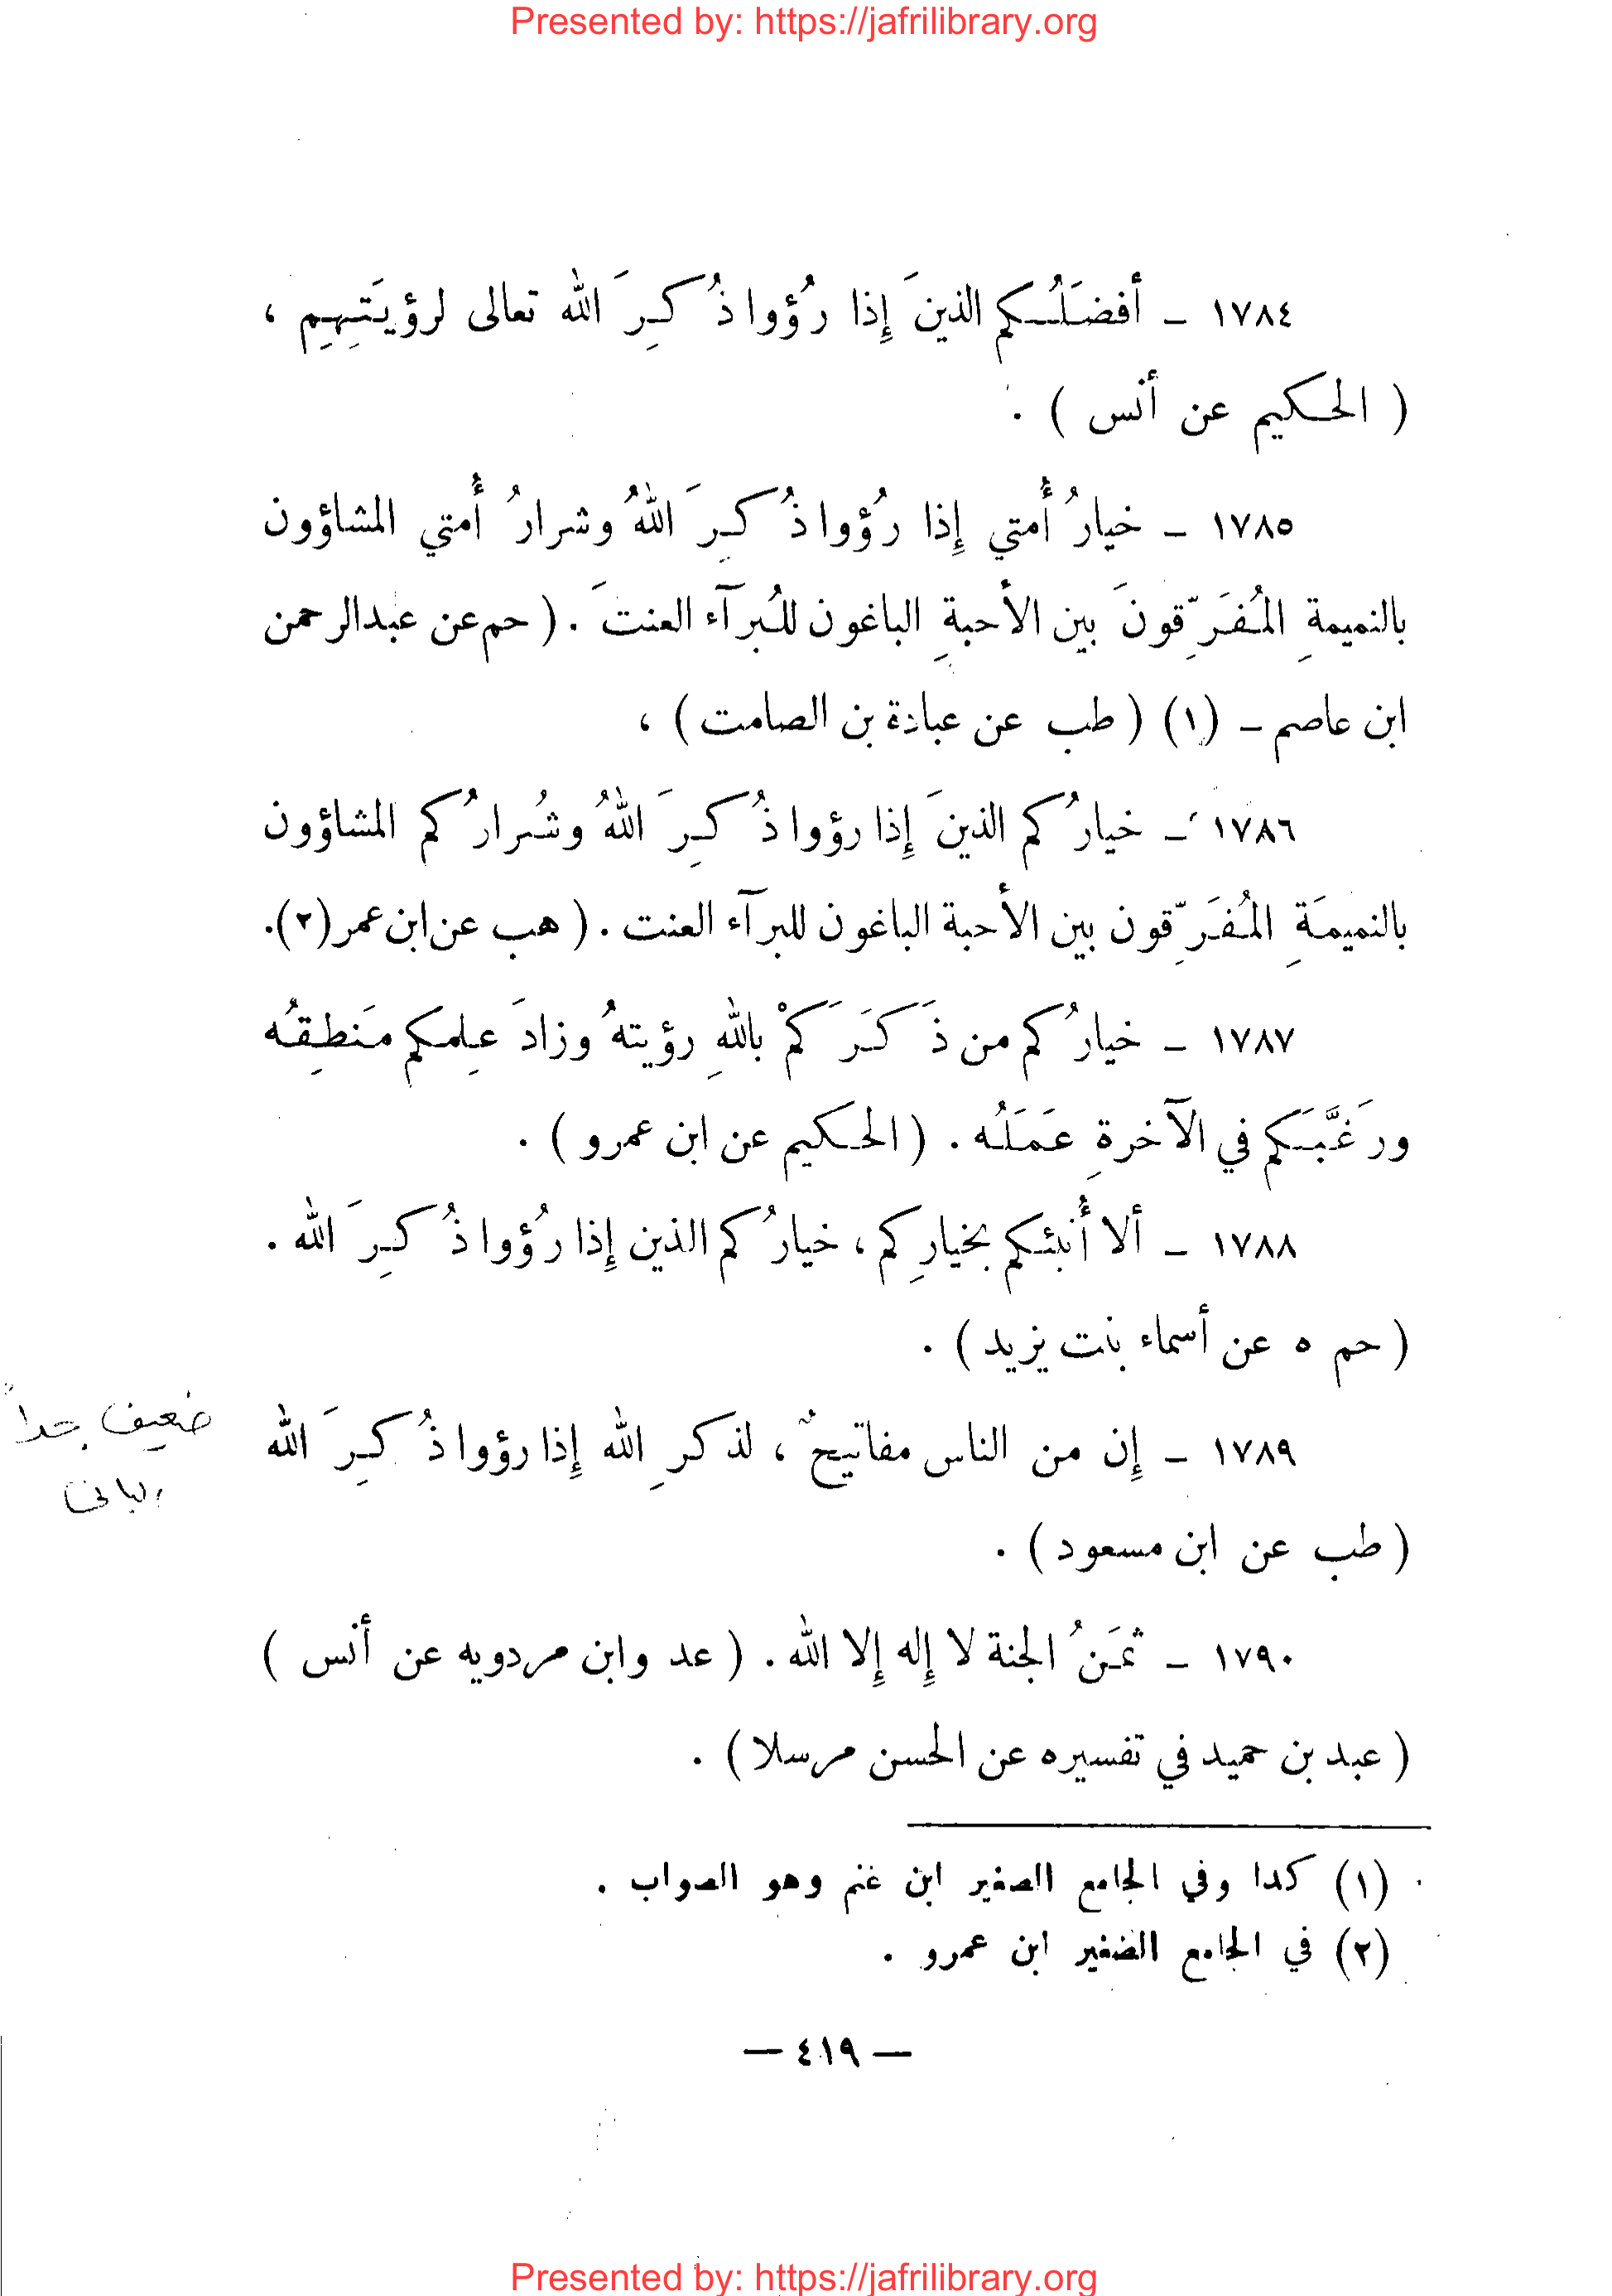 Presented by: https://jafrilibrary.org
١٧٨٤ – أفضَلُكم الذينَ إِذا رُؤوا ذُكِرَ الله تعالى لرؤيَتِهِم ،
( الحكيم عن أنس ) .
١٧٨٥ – خيارُ أُمتي إِذا رُؤوا ذُكِرَ اللهُ وشرارُ أُمتي المشاؤون
بالنميمةِ المُفَرِّقونَ بين الأحبةِ الباغون للبُرآء العنتَ . ( حم عن عبدالرحمن
ابن عاصم – (١) ( طب عن عبادة بن الصامت ) ،
١٧٨٦ – خيارُكم الذينَ إِذا رؤوا ذُكِرَ اللهُ وشُرارُكم المشاؤون
بالنميمَةِ المُفَرِّقون بين الأحبة الباغون للبرآء العنت . ( هب عن ابن عمر (٢).
١٧٨٧ – خيارُكم من ذَكَرَكمْ باللهِ رؤيتهُ وزادَ علِمكم مَنطِقُه
ورَغَّبَكم في الآخرةِ عَمَلُه . ( الحكيم عن ابن عمرو ) .
١٧٨٨ – ألا أُنبئكم بخيارِكم ، خيارُكم الذين إِذا رُؤوا ذُكِرَ الله .
( حم ه عن أسماء بنت يزيد ) .
١٧٨٩ – إِن من الناس مفاتيحٌ ، لذكرِ الله إِذا رؤوا ذُكِرَ الله
ضعيف جداً
البانى
( طب عن ابن مسعود ) .
١٧٩٠ – ثمَنُ الجنة لا إِله إِلا الله . ( عد وابن مردويه عن أنس )
( عبد بن حميد في تفسيره عن الحسن مرسلا ) .
(١) كدا وفي الجامع الصغير ابن غنم وهو الصواب .
(٢) في الجامع الضغير ابن عمرو .
— ٤١٩ —
Presented by: https://jafrilibrary.org